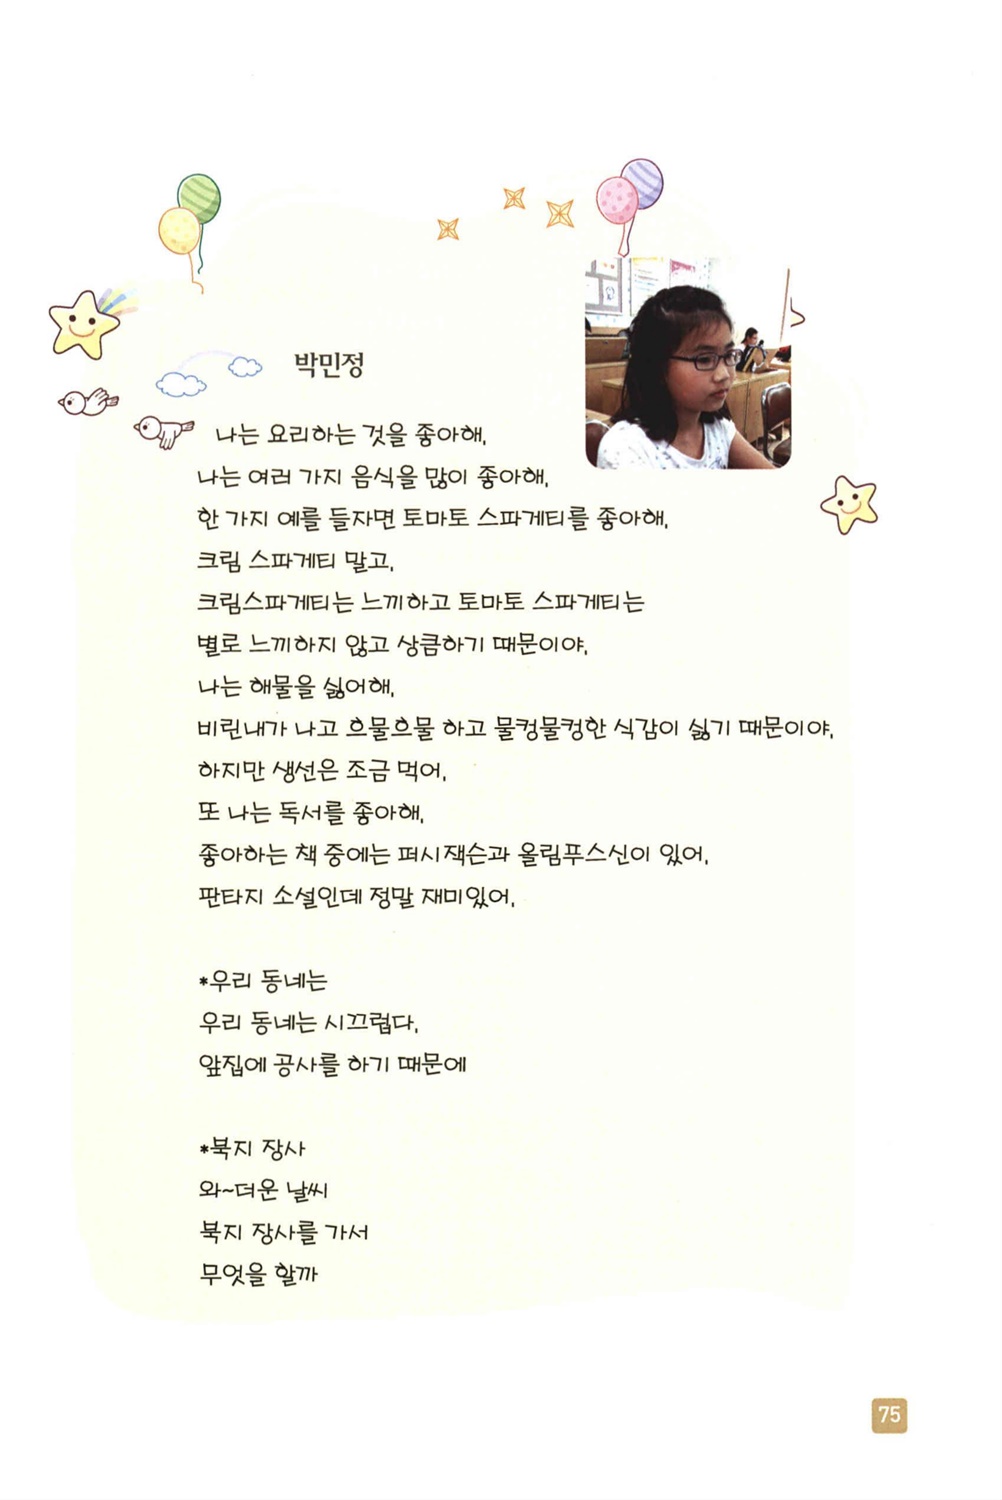 박민정
나는 요리하는 것을 좋아해.
나는 여러 가지 음식을 많이 좋아해.
한 가지 예를 들자면 토마토 스파게티를 좋아해.
크림 스파게티 말고.
크림스파게티는 느끼하고 토마토 스파게티는
별로 느끼하지 않고 상큼하기 때문이야.
나는 해물을 싫어해.
비린내가 나고 흐물흐물 하고 물컹물컹한 식감이 싫기 때문이야.
하지만 생선은 조금 먹어.
또 나는 독서를 좋아해.
좋아하는 책 중에는 퍼시잭슨과 올림푸스신이 있어.
판타지 소설인데 정말 재미있어.
*우리 동네는
우리 동네는 시끄럽다.
앞집에 공사를 하기 때문에
*북지 장사
와~더운 날씨
북지 장사를 가서
무엇을 할까
75